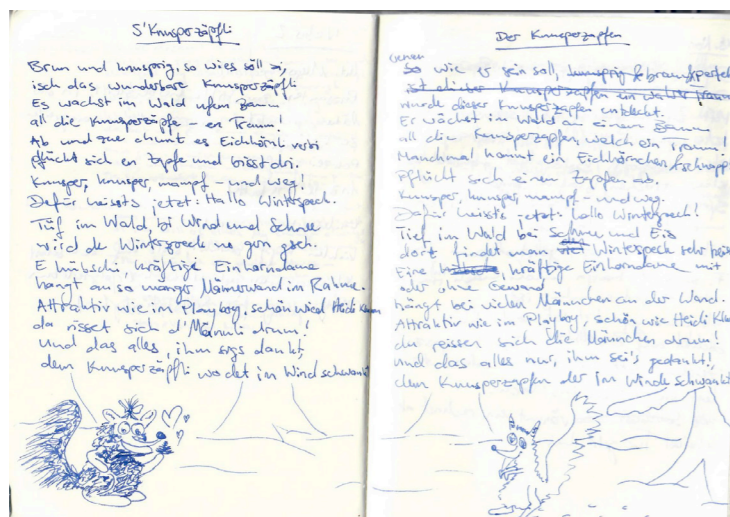 S'Knusperzäpfli
Brun und knusprig, so wies söll si,
isch das wunderbare Knusperzäpfli
Es wachst im Wald ufem Baum
all die Knusperzäpfe - en Traum!
Ab und zue chunnt es Eichhörnli verbi
pflückt sich en Zapfe und bisst dri.
Knusper, knusper, mampf - und weg!
Dafür heissts jetzt: Hallo Winterspeck.
Tüf im Wald, bi Wind und Schnee
wird de Winterspeck no gern gseh.
E hübschi, kräftige Einhorndame
hängt an so manger Männerwand im Rahme.
Attraktiv wie im Playboy, schön wie d Heidi Klum
da risset sich d'Männli drum!
Und das alles, ihm sigs dankt,
dem Knusperzäpfli wo det im Wind schwankt
Der Knusperzapfen
Genau
So wie er sein soll, knusprig & braun, perfekt
ist dieser Knusperzapfen ein wahrer Traum
wurde dieser Knusperzapfen entdeckt.
Er wächst im Wald an einem Baum
all die Knusperzapfen, welch ein Traum!
Manchmal kommt ein Eichhörnchen, schnapp
Pflückt sich einen Zapfen ab.
Knusper, knusper, mampf - und weg.
Dafür heissts jetzt: hallo Winterspeck!
Tief im Wald bei Schnee und Eis
dort findet man Winterspeck sehr heiss
Eine kräftige Einhorndame mit
oder ohne Gewand
hängt bei vielen Männchen an der Wand.
Attraktiv wie im Playboy, schön wie Heidi Klum
da reissen sich die Männchen drum!
und das alles nur, ihm sei's gedankt!,
dem Knusperzapfen der im Winde schwankt